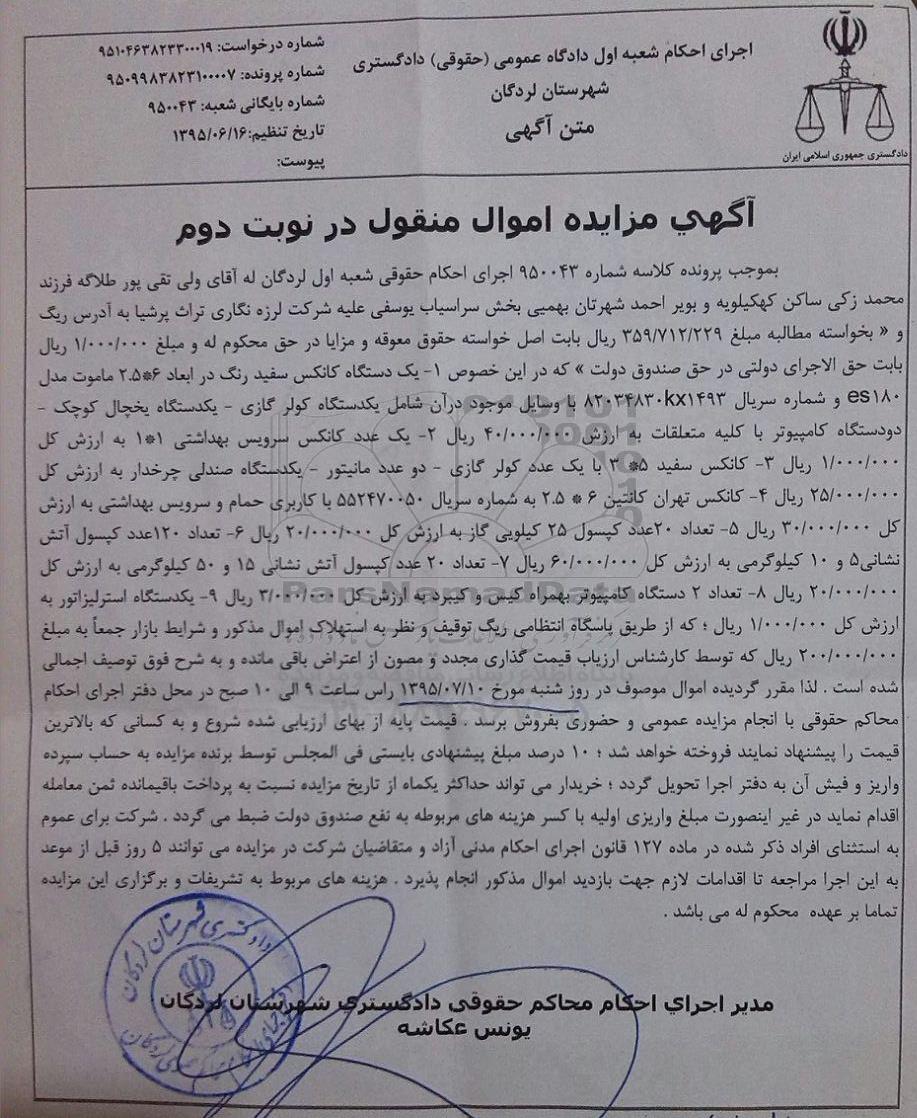 اجرای احکام شعبه اول دادگاه عمومی (حقوقی) دادگستری
شهرستان لردگان
متن آگهی
دادگستری جمهوری اسلامی ایران
شماره درخواست: ۹۵۱۰۴۶۳۸۲۳۳۰۰۰۱۹
شماره پرونده: ۹۵۰۹۹۸۳۸۲۳۱۰۰۰۰۷
شماره بایگانی شعبه: ۹۵۰۰۴۳
تاریخ تنظیم:۱۳۹۵/۰۶/۱۶
پیوست:
آگهي مزايده اموال منقول در نوبت دوم
بموجب پرونده کلاسه شماره ۹۵۰۰۴۳ اجرای احکام حقوقی شعبه اول لردگان له آقای ولی تقی پور طلاگه فرزند
محمد زکی ساکن کهکیلویه و بویر احمد شهرتان بهمیی بخش سراسیاب یوسفی علیه شرکت لرزه نگاری تراث پرشیا به آدرس ریگ
و « بخواسته مطالبه مبلغ ۳۵۹/۷۱۲/۲۲۹ ریال بابت اصل خواسته حقوق معوقه و مزایا در حق محکوم له و مبلغ ۱/۰۰۰/۰۰۰ ریال
بابت حق الاجرای دولتی در حق صندوق دولت » که در این خصوص ۱- یک دستگاه کانکس سفید رنگ در ابعاد ۶*۲.۵ ماموت مدل
es۱۸۰ و شماره سریال ۸۲۰۳۴۸۳۰kx۱۴۹۳ با وسایل موجود درآن شامل یکدستگاه کولر گازی - یکدستگاه یخچال کوچک -
دودستگاه کامپیوتر با کلیه متعلقات به ارزش ۴۰/۰۰۰/۰۰۰ ریال ۲- یک عدد کانکس سرویس بهداشتی ۱*۱ به ارزش کل
۱/۰۰۰/۰۰۰ ریال ۳- کانکس سفید ۵* ۳ با یک عدد کولر گازی - دو عدد مانیتور - یکدستگاه صندلی چرخدار به ارزش کل
۲۵/۰۰۰/۰۰۰ ریال ۴- کانکس تهران کانتین ۶ * ۲.۵ به شماره سریال ۵۵۲۴۷۰۰۵۰ با کاربری حمام و سرویس بهداشتی به ارزش
کل ۳۰/۰۰۰/۰۰۰ ریال ۵- تعداد ۲۰عدد کپسول ۲۵ کیلویی گاز به ارزش کل ۲۰/۰۰۰/۰۰۰ ریال ۶- تعداد ۱۲۰عدد کپسول آتش
نشانی۵ و ۱۰ کیلوگرمی به ارزش کل ۶۰/۰۰۰/۰۰۰ ریال ۷- تعداد ۲۰ عدد کپسول آتش نشانی ۱۵ و ۵۰ کیلوگرمی به ارزش کل
۲۰/۰۰۰/۰۰۰ ریال ۸- تعداد ۲ دستگاه کامپیوتر بهمراه کیس و کیبرد به ارزش کل ۳/۰۰۰/۰۰۰ ریال ۹- یکدستگاه استرلیزاتور به
ارزش کل ۱/۰۰۰/۰۰۰ ریال ؛ که از طریق پاسگاه انتظامی ریگ توقیف و نظر به استهلاک اموال مذکور و شرایط بازار جمعاً به مبلغ
۲۰۰/۰۰۰/۰۰۰ ریال که توسط کارشناس ارزیاب قیمت گذاری مجدد و مصون از اعتراض باقی مانده و به شرح فوق توصیف اجمالی
شده است . لذا مقرر گردیده اموال موصوف در روز شنبه مورخ ۱۳۹۵/۰۷/۱۰ راس ساعت ۹ الی ۱۰ صبح در محل دفتر اجرای احکام
محاکم حقوقی با انجام مزایده عمومی و حضوری بفروش برسد . قیمت پایه از بهای ارزیابی شده شروع و به کسانی که بالاترین
قیمت را پیشنهاد نمایند فروخته خواهد شد ؛ ۱۰ درصد مبلغ پیشنهادی بایستی فی المجلس توسط برنده مزایده به حساب سپرده
واریز و فیش آن به دفتر اجرا تحویل گردد ؛ خریدار می تواند حداکثر یکماه از تاریخ مزایده نسبت به پرداخت باقیمانده ثمن معامله
اقدام نماید در غیر اینصورت مبلغ واریزی اولیه با کسر هزینه های مربوطه به نفع صندوق دولت ضبط می گردد . شرکت برای عموم
به استثنای افراد ذکر شده در ماده ۱۲۷ قانون اجرای احکام مدنی آزاد و متقاضیان شرکت در مزایده می توانند ۵ روز قبل از موعد
به این اجرا مراجعه تا اقدامات لازم جهت بازدید اموال مذکور انجام پذیرد . هزینه های مربوط به تشریفات و برگزاری این مزایده
تماما بر عهده محکوم له می باشد .
مدير اجراي احكام محاكم حقوقي دادگستري شهرستان لردگان
يونس عكاشه
دادگستری شهرستان لردگان
ParsNamadData